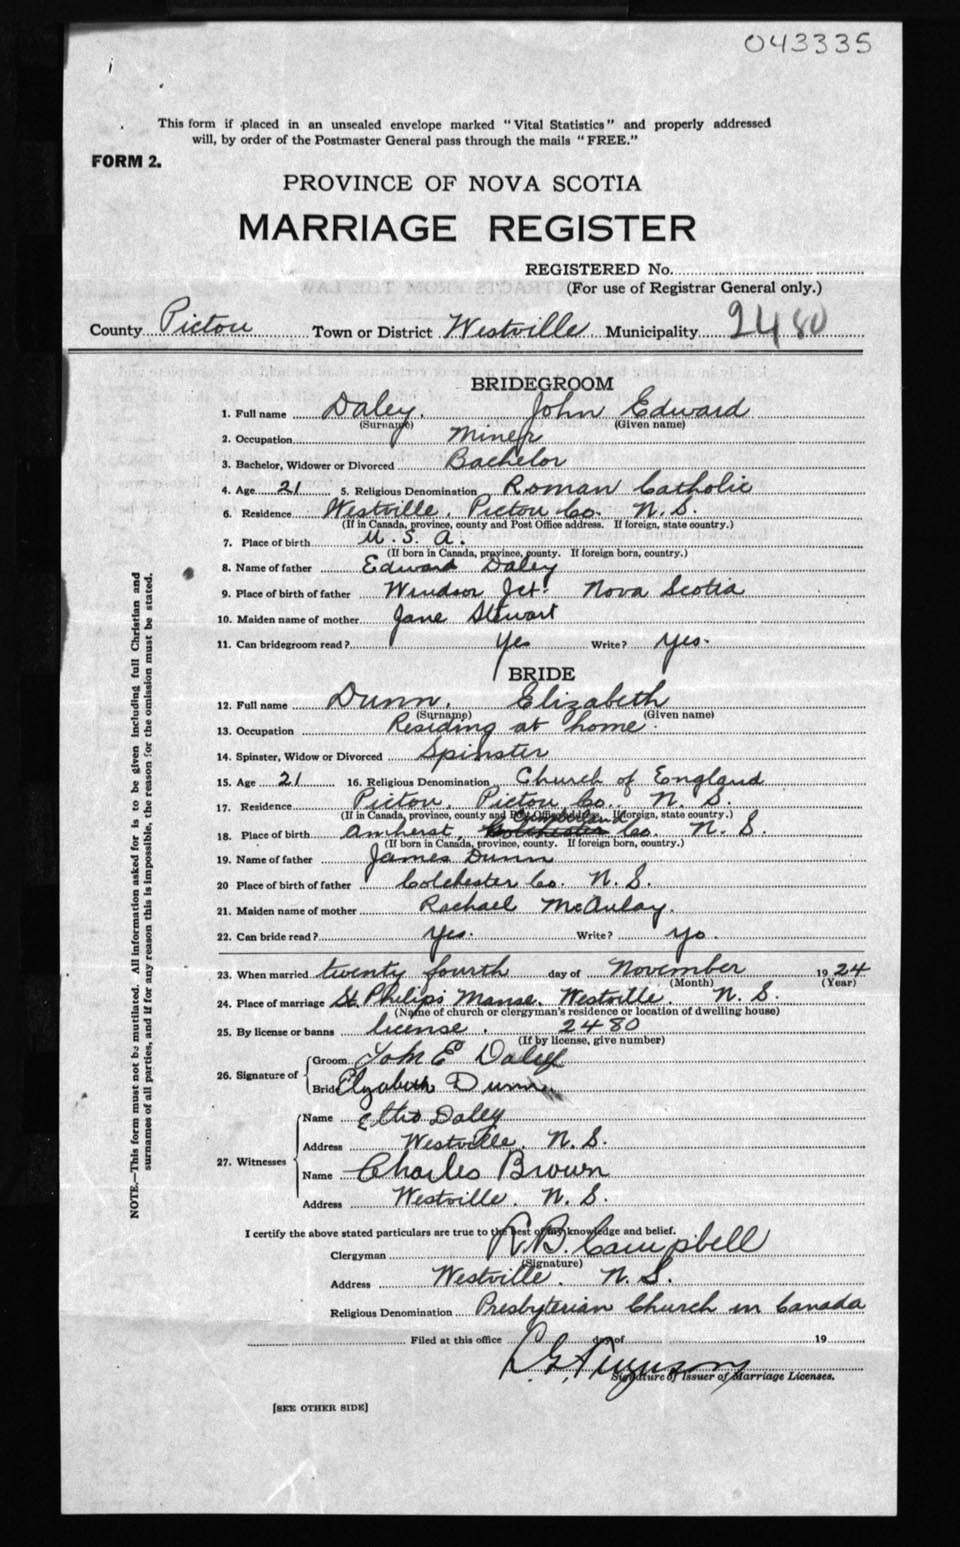 043335
This form if placed in an unsealed envelope marked "Vital Statistics" and properly addressed
will, by order of the Postmaster General pass through the mails "FREE."
FORM 2.
PROVINCE OF NOVA SCOTIA
MARRIAGE REGISTER
REGISTERED No.
(For use of Registrar General only.)
County Pictou Town or District Westville Municipality 2480
BRIDEGROOM
1. Full name Daley, John Edward
(Surname) (Given name)
2. Occupation Miner
3. Bachelor, Widower or Divorced Bachelor
4. Age 21 5. Religious Denomination Roman Catholic
6. Residence Westville, Pictou Co. N.S.
(If in Canada, province, county and Post Office address. If foreign, state country.)
7. Place of birth U.S.A.
(If born in Canada, province, county. If foreign born, country.)
8. Name of father Edward Daley
9. Place of birth of father Windsor Jct. Nova Scotia
10. Maiden name of mother Jane Stewart
11. Can bridegroom read? Yes Write? Yes.
BRIDE
12. Full name Dunn, Elizabeth
(Surname) (Given name)
13. Occupation Residing at home.
14. Spinster, Widow or Divorced Spinster
15. Age 21 16. Religious Denomination Church of England
17. Residence Pictou, Pictou Co., N.S.
(If in Canada, province, county and Post Office address. If foreign, state country.)
Cumberland
18. Place of birth Amherst, Colchester Co. N.S.
(If born in Canada, province, county. If foreign born, country.)
19. Name of father James Dunn
20 Place of birth of father Colchester Co. N.S.
21. Maiden name of mother Rachael McAulay.
22. Can bride read? Yes. Write? Yes.
23. When married twenty fourth day of November 1924
(Month) (Year)
24. Place of marriage St. Philips Manse, Westville, N.S.
(Name of church or clergyman's residence or location of dwelling house)
25. By license or banns license. 2480
(If by license, give number)
26. Signature of Groom John E Daley
Bride Elizabeth Dunn
27. Witnesses
Name Daley
Address Westville, N.S.
Name Charles Brown
Address Westville, N.S.
I certify the above stated particulars are true to the best of my knowledge and belief.
Clergyman R.B. Campbell
(Signature)
Address Westville, N.S.
Religious Denomination Presbyterian Church in Canada
Filed at this office day of 19
Signature of Issuer of Marriage Licenses.
[SEE OTHER SIDE]
NOTE.—This form must not be mutilated. All information asked for is to be given including full Christian and
surnames of all parties, and if for any reason this is impossible, the reason for the omission must be stated.